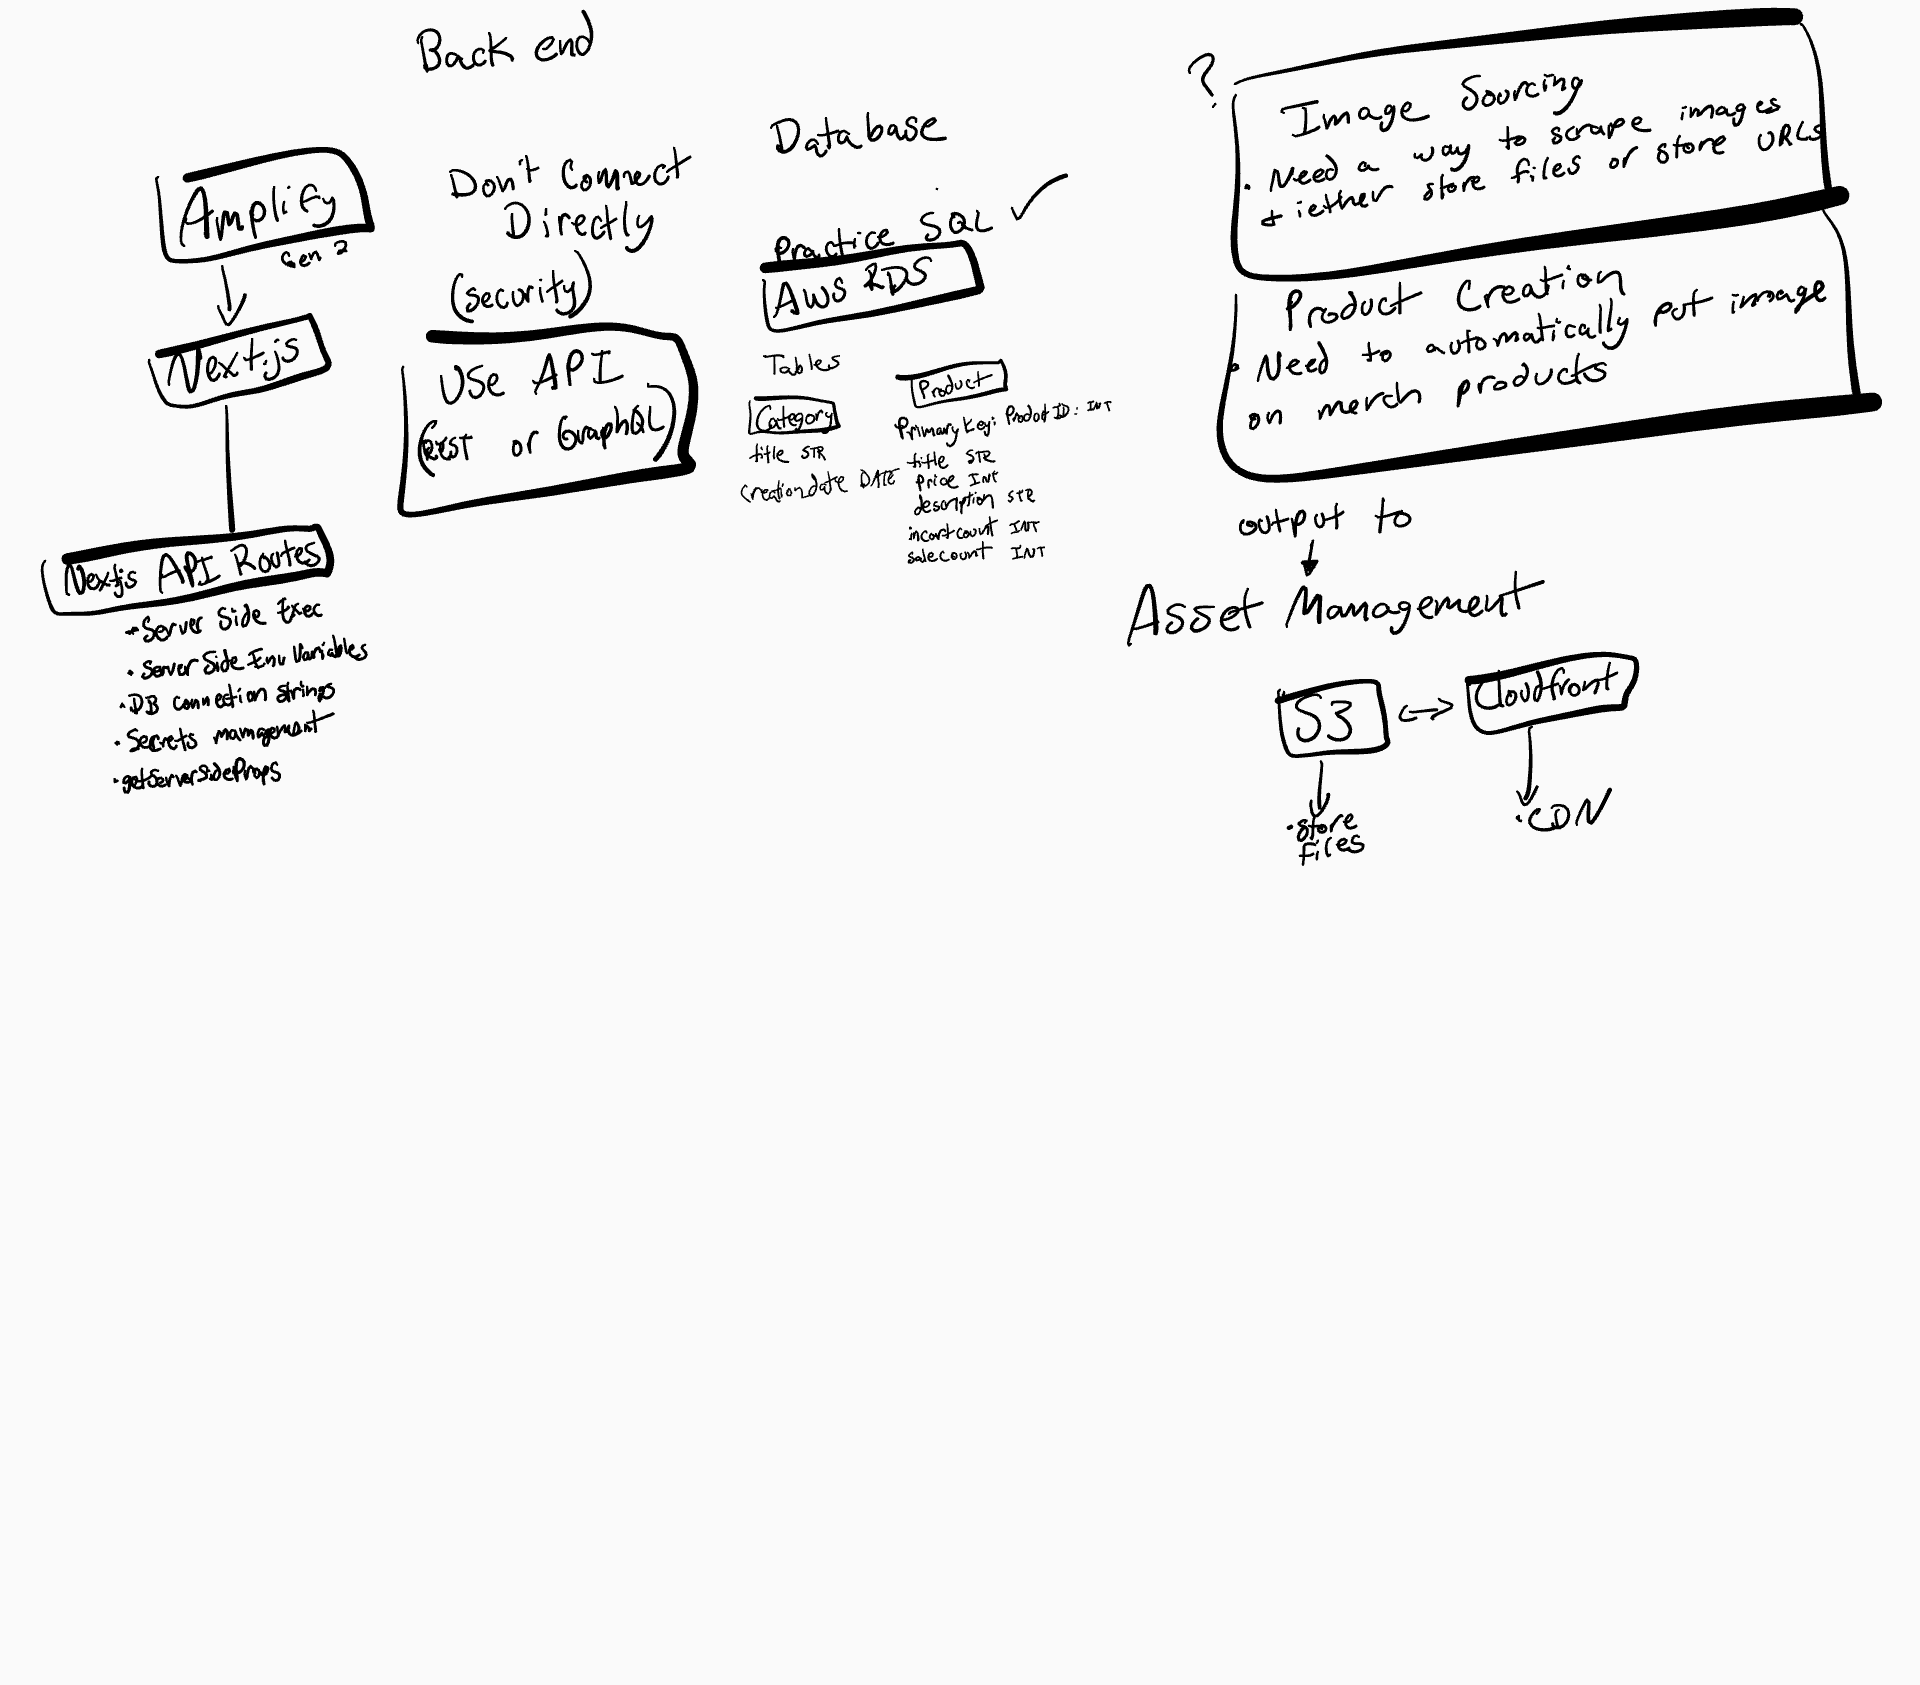 Back end
Amplify
Gen 2
Next.js
Nextjs API Routes
Server Side Exec
• Server Side Env Variables
• DB connection strings
• Secrets management
• getServerSideProps
Don't Connect
Directly
(security)
Use API
(REST or GraphQL)
Database
Practice SQL ✓
AWS RDS
Tables
Category
title STR
Creation date DATE
Product
Primary Key: Product ID: INT
title STR
Price INT
description STR
incart count INT
sale count INT
?
Image Sourcing
• Need a way to scrape images
+ iether store files or store URLs
Product Creation
• Need to automatically put image
on merch products
output to
Asset Management
S3
Cloudfront
• store
files
• CDN